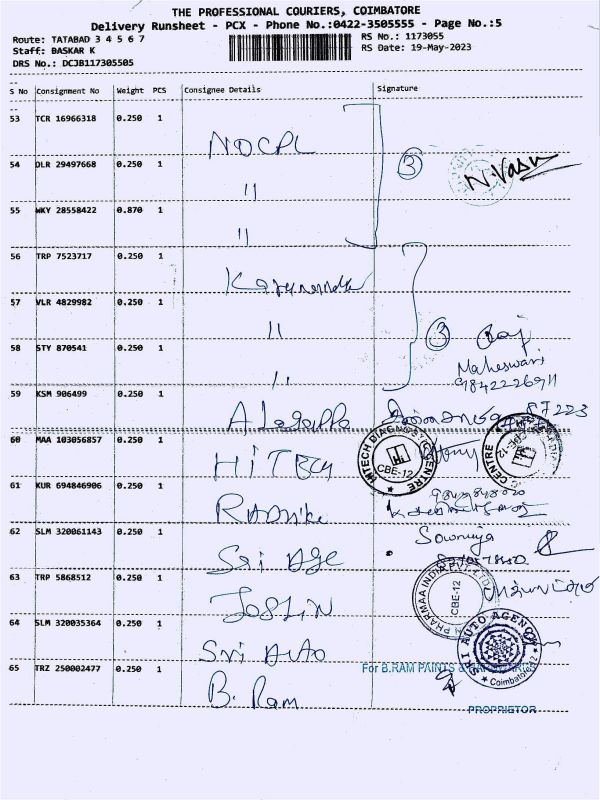 THE PROFESSIONAL COURIERS, COIMBATORE
Delivery Runsheet - PCX - Phone No.:0422-3505555 - Page No.:5
Route: TATABAD 3 4 5 6 7
RS No.: 1173055
Staff: BASKAR K
RS Date: 19-May-2023
DRS No.: DCJB117305505
S No Consignment No Weight PCS Consignee Details Signature
53 TCR 16966318 0.250 1 NDCPL
54 DLR 29497668 0.250 1 " 3 N.Vasu
55 WKY 28558422 0.870 1 "
56 TRP 7523717 0.250 1
57 VLR 4829982 0.250 1 "
58 STY 870541 0.250 1 " 3
Maheswari
9842226911
59 KSM 906499 0.250 1
60 MAA 103056857 0.250 1 HiTECH
HITECH DIAGNOSTIC CENTRE
Hi
CBE-12
61 KUR 694846906 0.250 1
62 SLM 320061143 0.250 1 Sri Age Sowmiya
63 TRP 5868512 0.250 1 JOSLIN
PHARMAA INDIA PVT. LTD
CBE-12
64 SLM 320035364 0.250 1 Sri Auto
SRI AUTO AGENCY
Coimbatore-12
65 TRZ 250002477 0.250 1 B. Ram
For B.RAM PAINTS &
PROPRIETOR